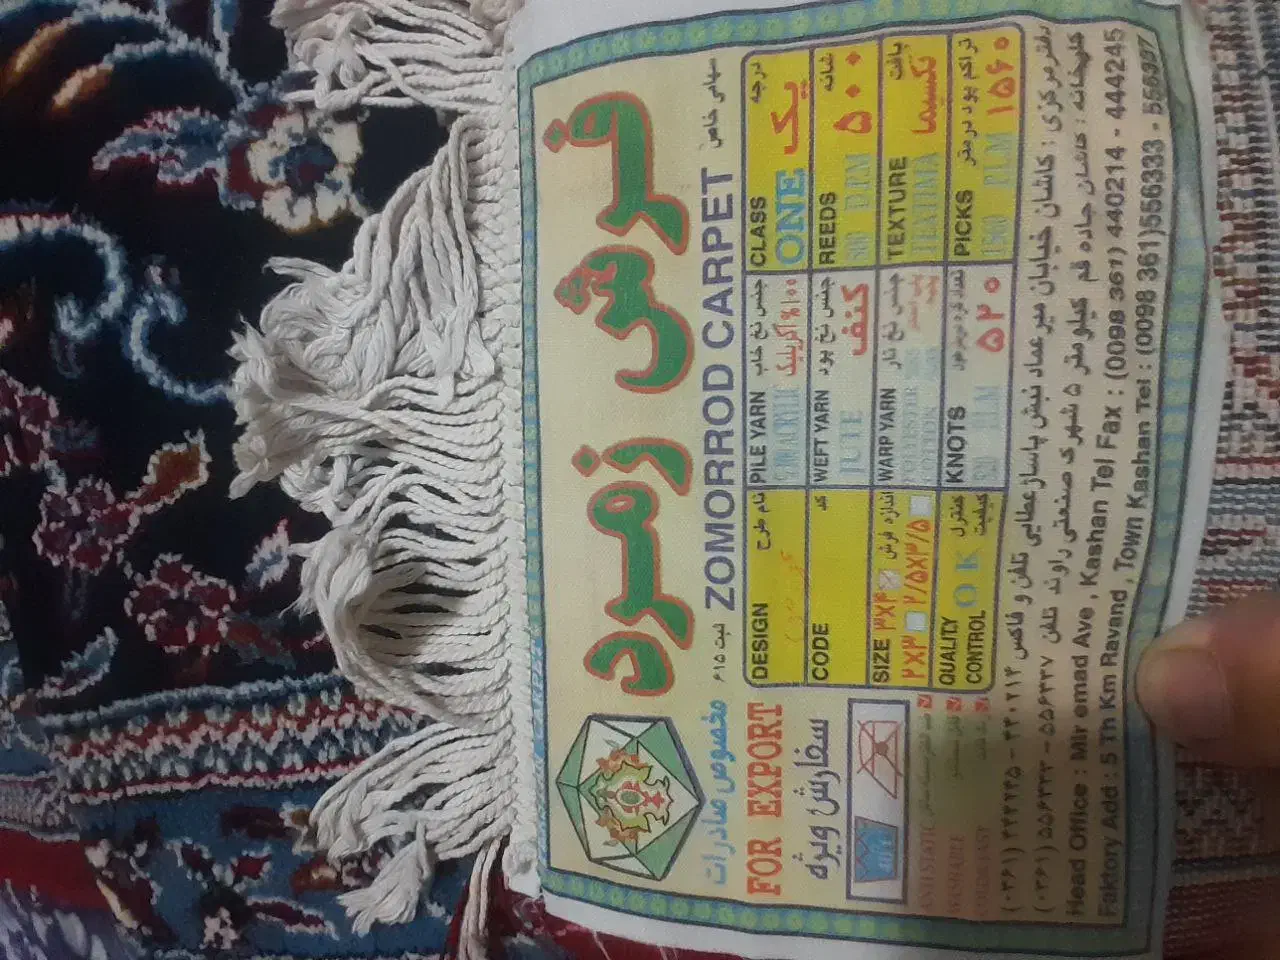 فرش زمرد
ثبت ۶۱۵ ZOMORROD CARPET سهامی خاص
مخصوص صادرات
FOR EXPORT
سفارش ویژه
DESIGN نام طرح
CODE کد
SIZE اندازه فرش ۳X۴
۲X۳ ۲/۵X۳/۵
QUALITY CONTROL کنترل کیفیت
O K
PILE YARN جنس نخ خاب
۱۰۰٪ اکریلیک
WEFT YARN جنس نخ پود
JUTE کنف
WARP YARN جنس نخ تار
POLYESTER
COTTON
KNOTS
۵۲۰
CLASS درجه
ONE یک
REEDS شانه
500 ۵۰۰
TEXTURE بافت
تکسیما
PICKS تراکم پود در متر
1560 ۱۵۶۰
ANTISTATIC
WASHABLE
دفتر مرکزی : کاشان خیابان میر عماد نبش پاساژ عطایی تلفن و فاکس
کارخانه : کاشان جاده قم کیلومتر ۵ شهرک صنعتی راوند تلفن ۵۵۶۳۳۳ (۰۳۶۱)
Head Office : Mir emad Ave , Kashan Tel Fax : (0098 361) 440214 - 444245
Faktory Add : 5 Th Km Ravand , Town Kashan Tel : (0098 361)556333 -